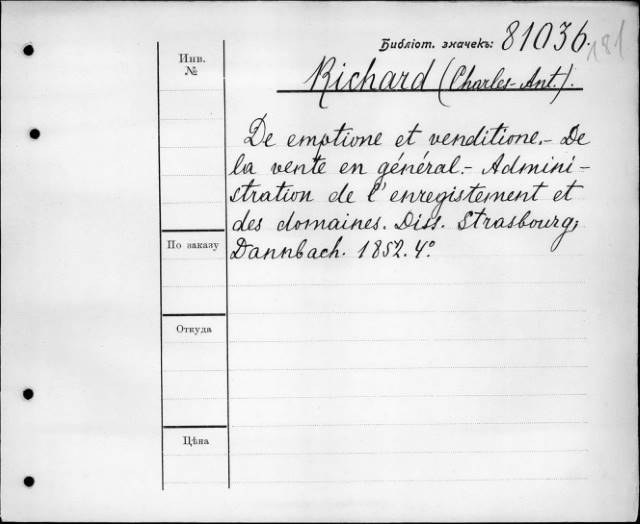 Библіот. значекъ: 81036.
181
Инв.
№
Richard (Charles-Ant.).
De emptione et venditione.- De
la vente en général.- Admini-
stration de l'enregistement et
des domaines. Diss. Strasbourg,
Dannbach. 1852. 4°.
По заказу
Откуда
Цѣна